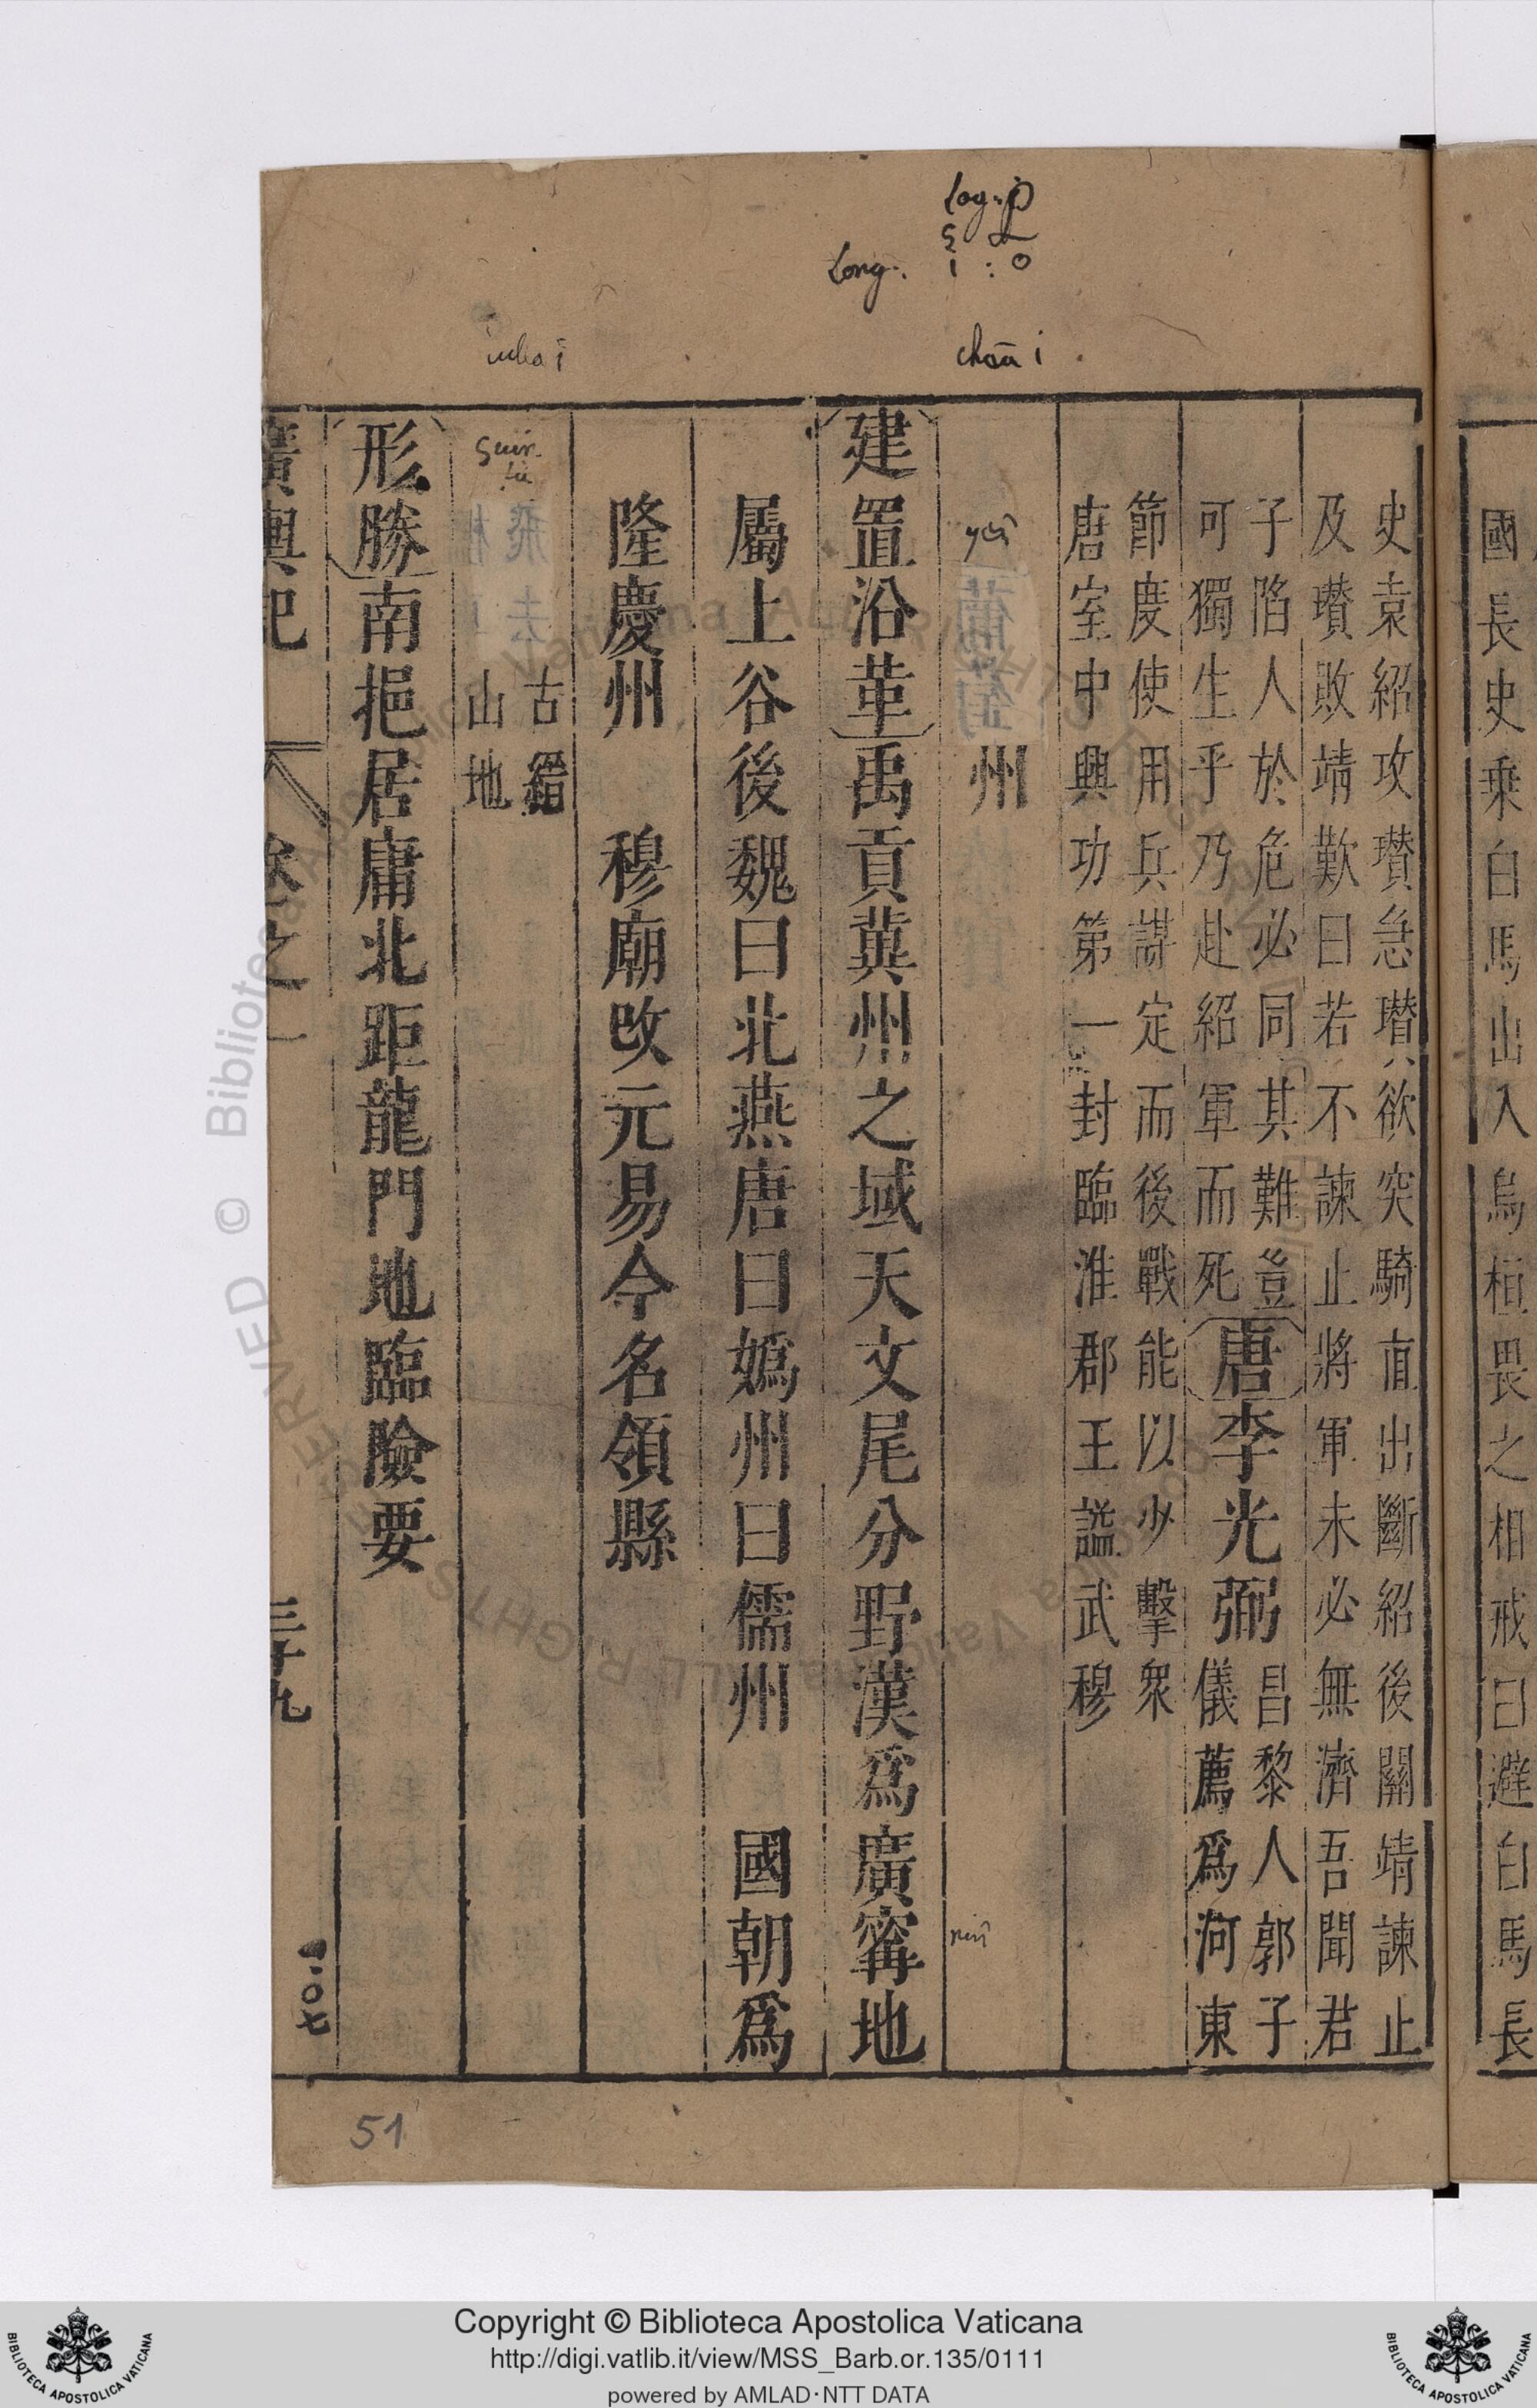 國長史乘白馬出入烏桓畏之相戒曰避白馬長
史袁紹攻瓚急瓚欲突騎直出斷紹後關靖諫止
及瓚敗靖歎曰若不諫止將軍未必無濟吾聞君
子陷人於危必同其難豈
可獨生乎乃赴紹軍而死
唐李光弼
昌黎人郭子
儀薦爲河東
節度使用兵謀定而後戰能以少擊衆
唐室中興功第一封臨淮郡王謚武穆
州
建置沿革禹貢冀州之域天文尾分野漢爲廣寗地
屬上谷後魏曰北燕唐曰嬀州曰儒州 國朝爲
隆慶州 穆廟改元易今名領縣
古縉
山地
形勝南挹居庸北距龍門地臨險要
廣輿記 卷之一 三十九
Long:
chāa i
51
Copyright © Biblioteca Apostolica Vaticana
http://digi.vatlib.it/view/MSS_Barb.or.135/0111
powered by AMLAD·NTT DATA
BIBLIOTECA APOSTOLICA VATICANA
BIBLIOTECA APOSTOLICA VATICANA